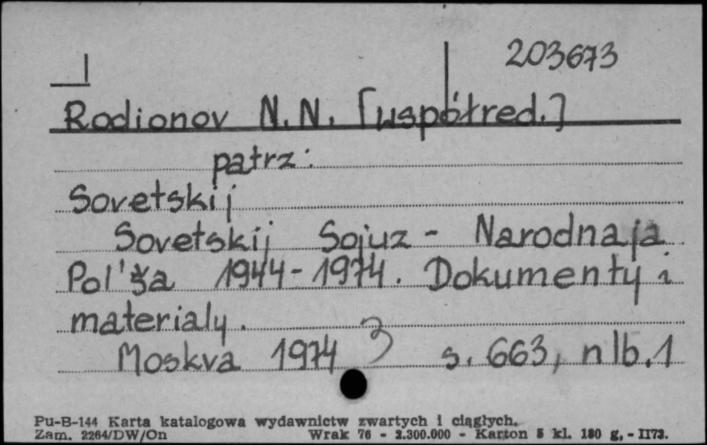 203673
Rodionov N.N. [współred.]
patrz:
Sovetskij
Sovetskij Sojuz - Narodnaja
Pol'ša 1944-1974. Dokumenty i
materialy.
Moskva 1974 s. 663, nlb. 1
Pu-B-144 Karta katalogowa wydawnictw zwartych i ciągłych.
Zam. 2264/DW/On Wrak 76 - 2.300.000 - Karton 5 kl. 180 g. - II73.